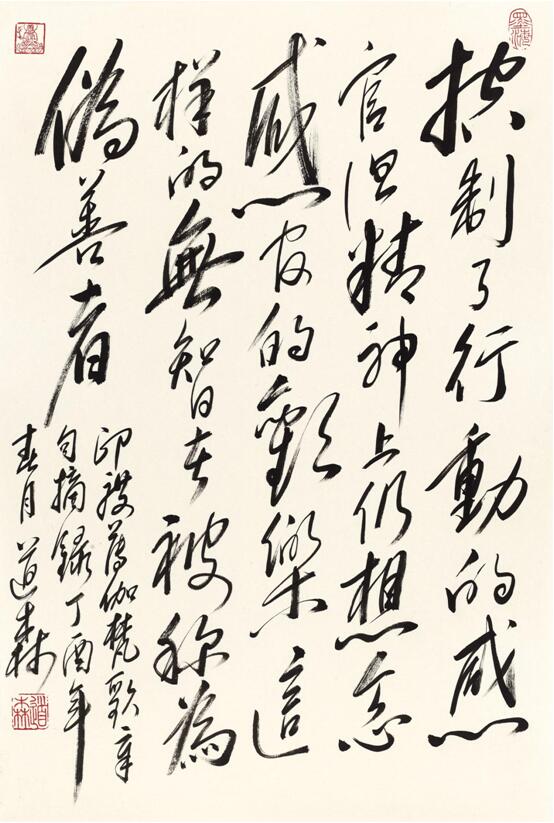 控制了行動的感
官但精神上仍想念
感官的歡樂這
樣的無智者被称為
偽善者
印度薄伽梵歌章
句摘録丁酉年
春月道森
道森